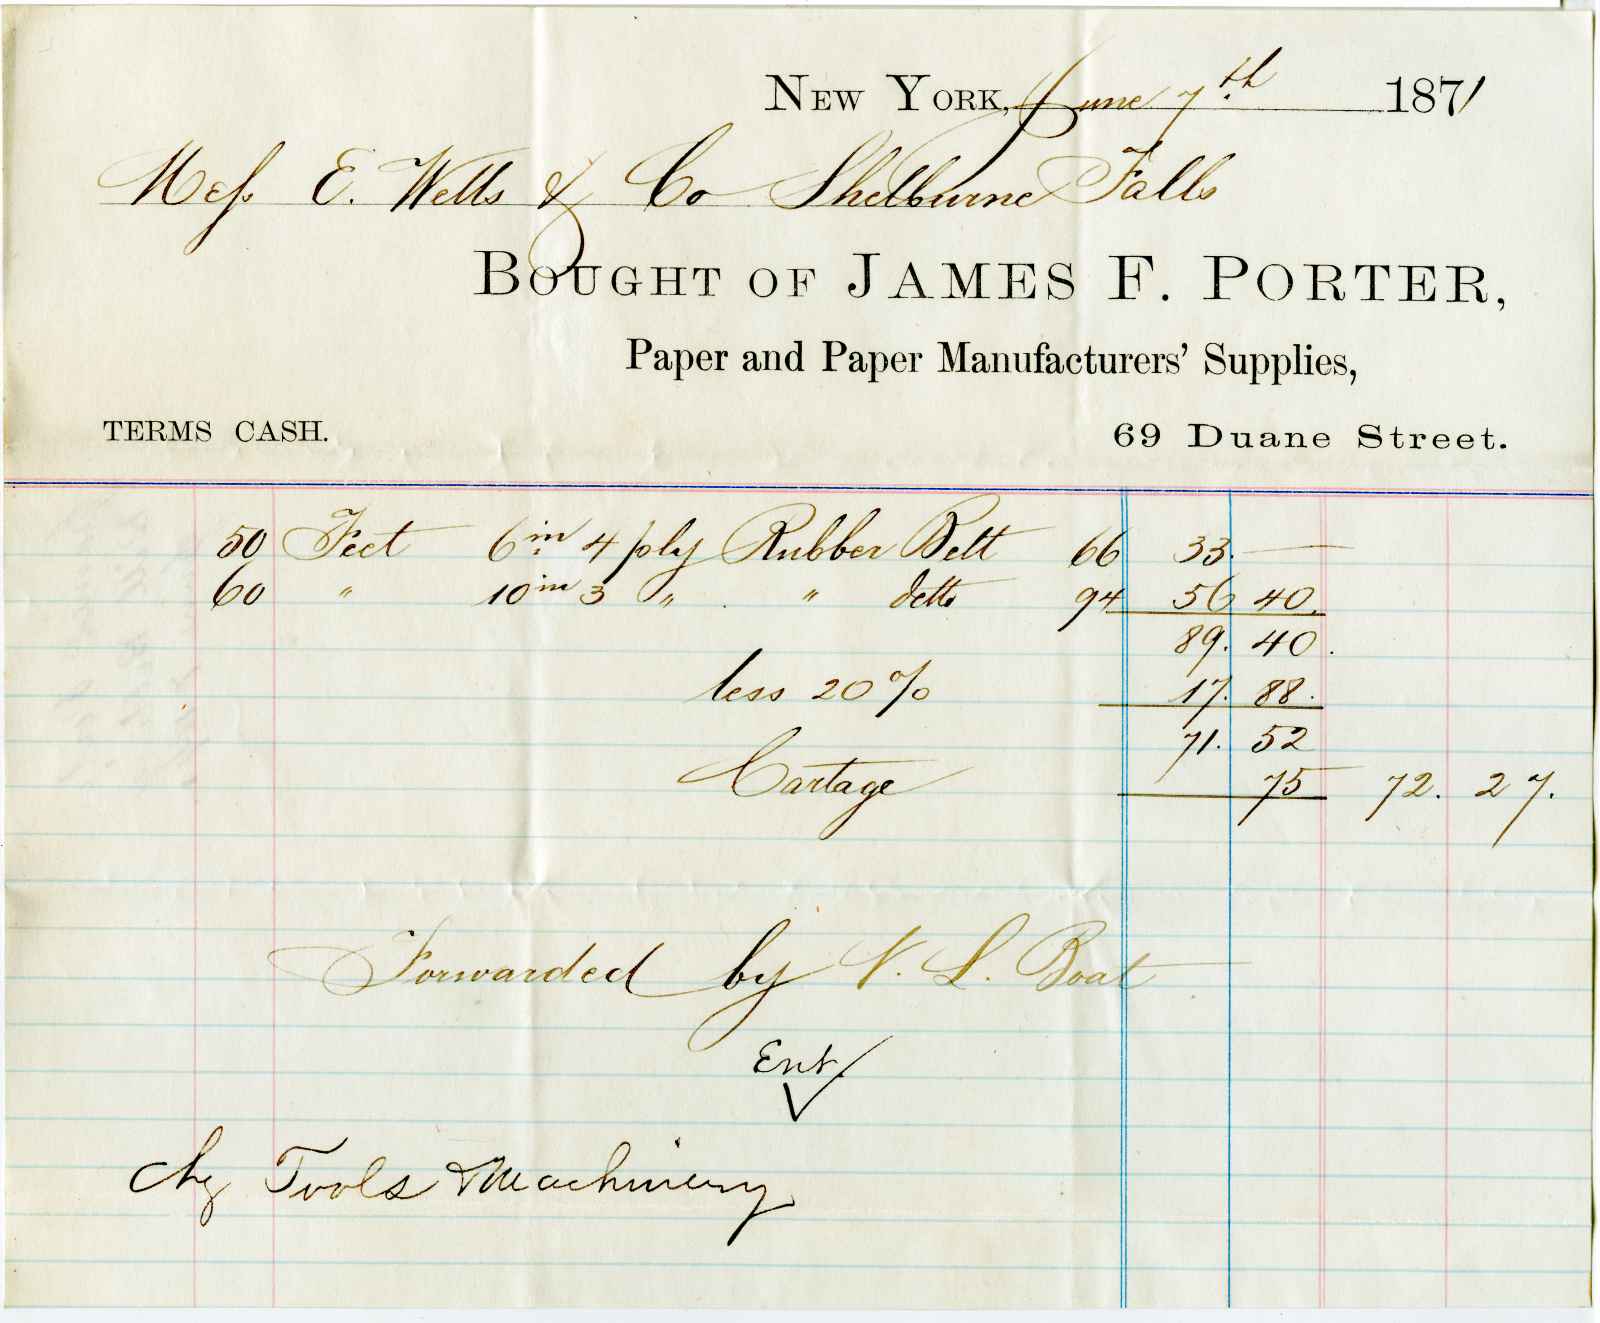 New York, June 7th 1871
Mess E. Wells & Co Shelburne Falls
Bought of James F. Porter,
Paper and Paper Manufacturers' Supplies,
TERMS CASH.
69 Duane Street.
50 Feet 6 in 4 ply Rubber Belt 66 33. —
60 " 10 in 3 " " ditto 94 56 40.
89. 40.
less 20 % 17. 88.
71. 52
Cartage 75 72. 27.
Forwarded by N. L. Boat
Ent.
Chg Tools & Machinery